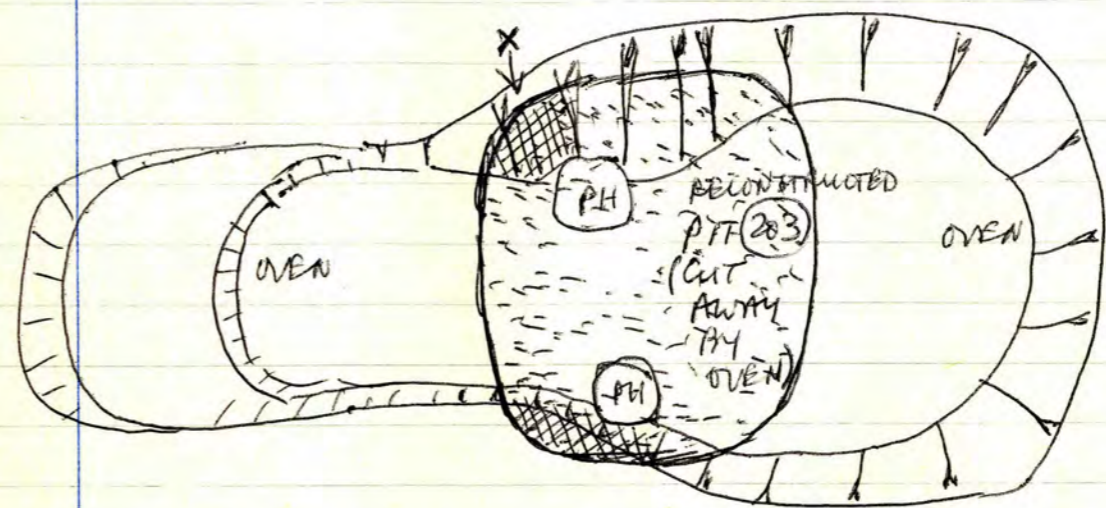 X
PH
RECONSTRUCTED
PIT 203
(CUT
AWAY
BY
OVEN)
OVEN
OVEN
PH